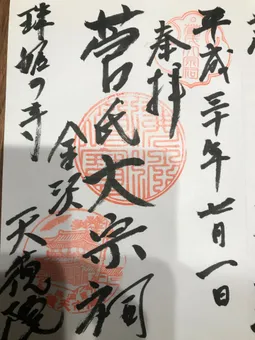 平成三十年七月一日
奉拝
菅氏大宗祠
金沢 天徳院
珠姫の寺